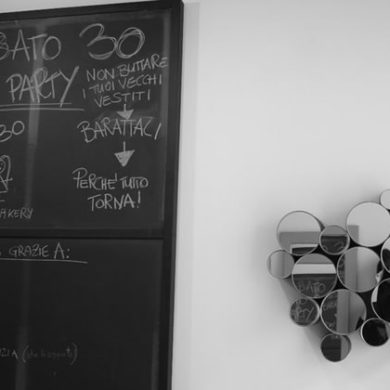 BATO 30
PARTY
NON BUTTARE
I TUOI VECCHI
VESTITI
30
BARATTALI
PERCHÉ TUTTO
TORNA!
BAKERY
GRAZIE A: